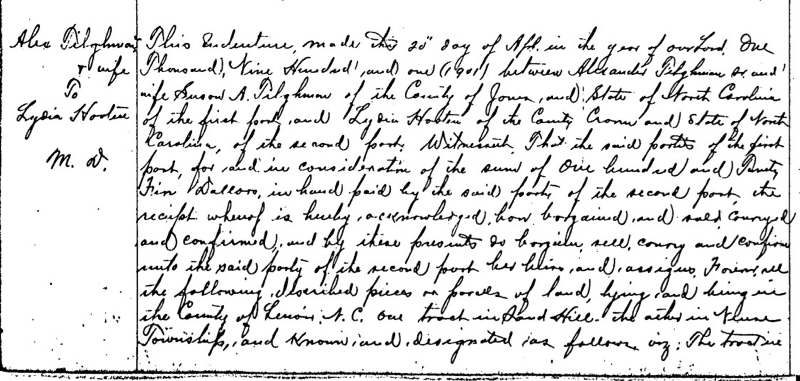 Alex Tilghman
& wife
To
Lydia Horten
M. D.
This Indenture, made this 20th day of Apl. in the year of our Lord One
Thousand, Nine Hundred, and one (1901) between Alexander Tilghman and
wife Susan A. Tilghman of the County of Jones, and State of North Carolina
of the first part, and Lydia Horten of the County Craven and State of North
Carolina, of the second part, Witnesseth, That the said parties of the first
part, for and in consideration of the sum of One hundred and Twenty
Five Dollars, in hand paid by the said party of the second part, the
receipt whereof is hereby acknowledged, have bargained, and sold, conveyed
and confirmed, and by these presents do bargain, sell, convey and confirm
unto the said party of the second part her heirs, and assigns, Forever, all
the following described pieces or parcels of land, lying and being in
the County of Lenoir, N.C. One tract in Sand Hill the other in Neuse
Township, and known and designated as follows viz: The tract in